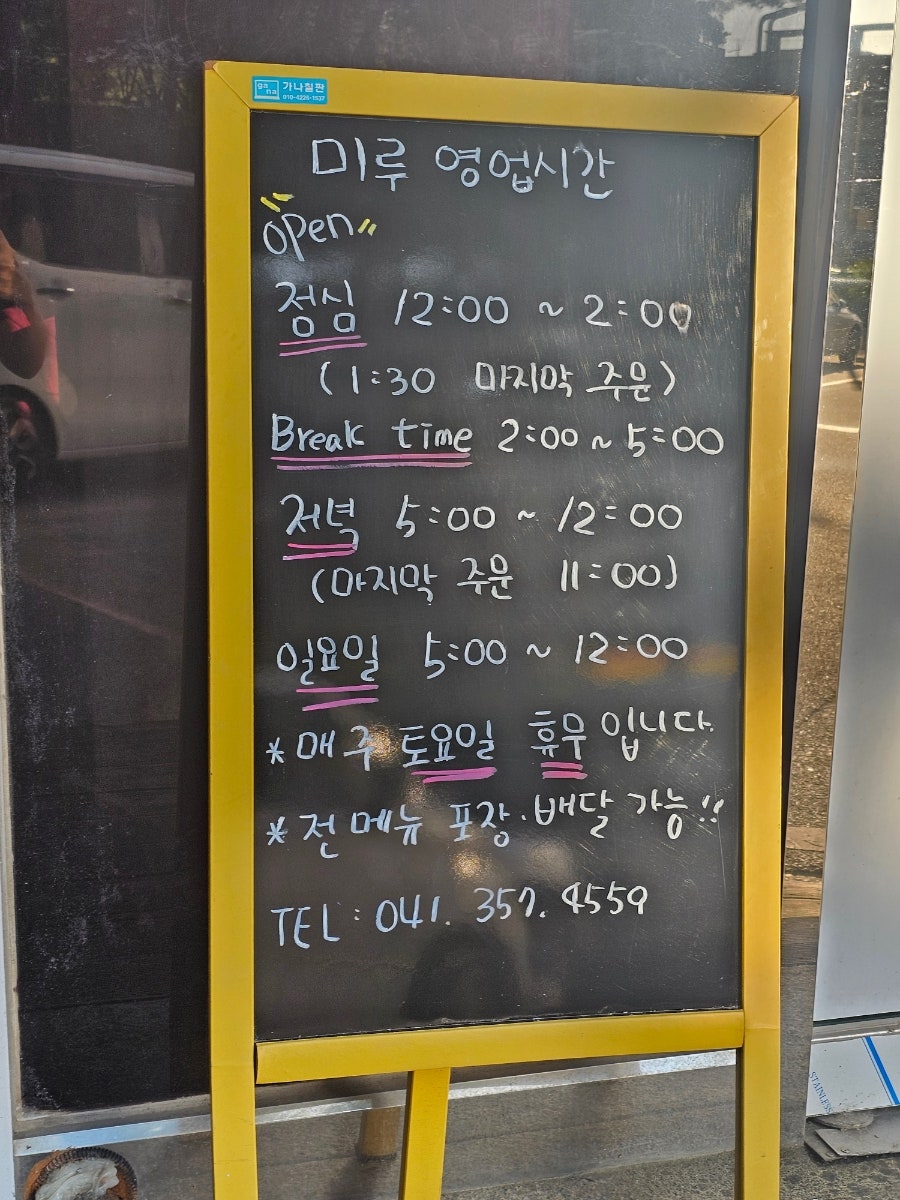 ga na 가나칠판
010-4226-1537
미루 영업시간
open
점심 12:00 ~ 2:00
(1:30 마지막 주문)
Break time 2:00 ~ 5:00
저녁 5:00 ~ 12:00
(마지막 주문 11:00)
일요일 5:00 ~ 12:00
* 매주 토요일 휴무입니다.
* 전메뉴 포장·배달 가능!!
TEL: 041. 357. 4559
STAINLESS